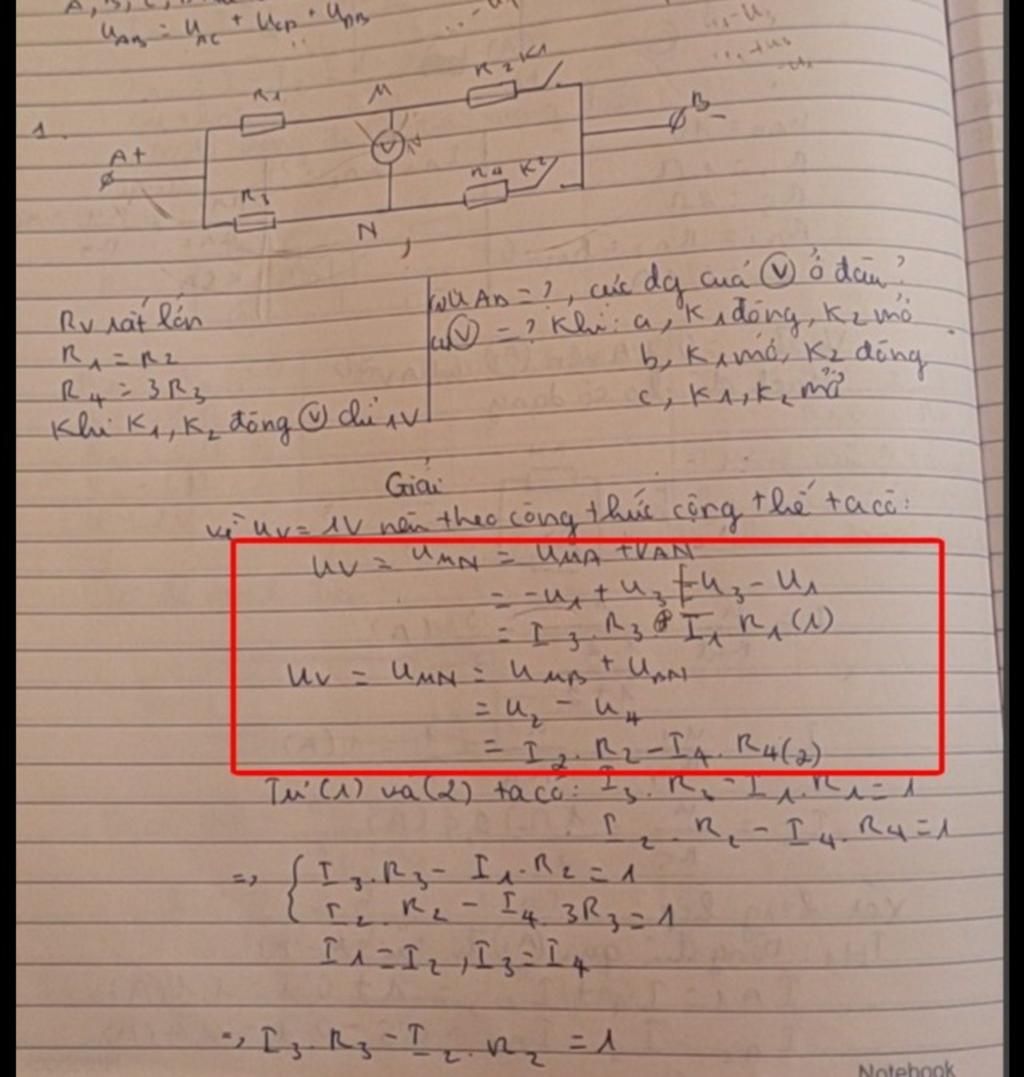 A, B, C,
U_AB = U_AC + U_CD + U_DB
1.
A+
R1
M
R2 K1
B-
V
R3
N
R4 K2
Rv rất lớn
R1 = R2
R4 = 3R3
Khi K1, K2 đóng Ⓥ chỉ 1V
U_AB = ?, cực dg cuả Ⓥ ở đâu?
Ⓥ = ? Khi: a, K1 đóng, K2 mở
b, K1 mở, K2 đóng
c, K1, K2 mở
Giải
Vì Uv = 1V nên theo công thức cộng thế ta có:
Uv = U_MN = U_MA + U_AN
= -U1 + U3 = U3 - U1
= I3 . R3 - I1 R1 (1)
Uv = U_MN = U_MB + U_BN
= U2 - U4
= I2 . R2 - I4 . R4 (2)
Từ (1) và (2) ta có: I3 . R3 - I1 . R1 = 1
I2 . R2 - I4 . R4 = 1
=> { I3 . R3 - I1 . R2 = 1
I2 . R2 - I4 . 3R3 = 1
I1 = I2, I3 = I4
=> I3 . R3 - I2 . R2 = 1
Notebook